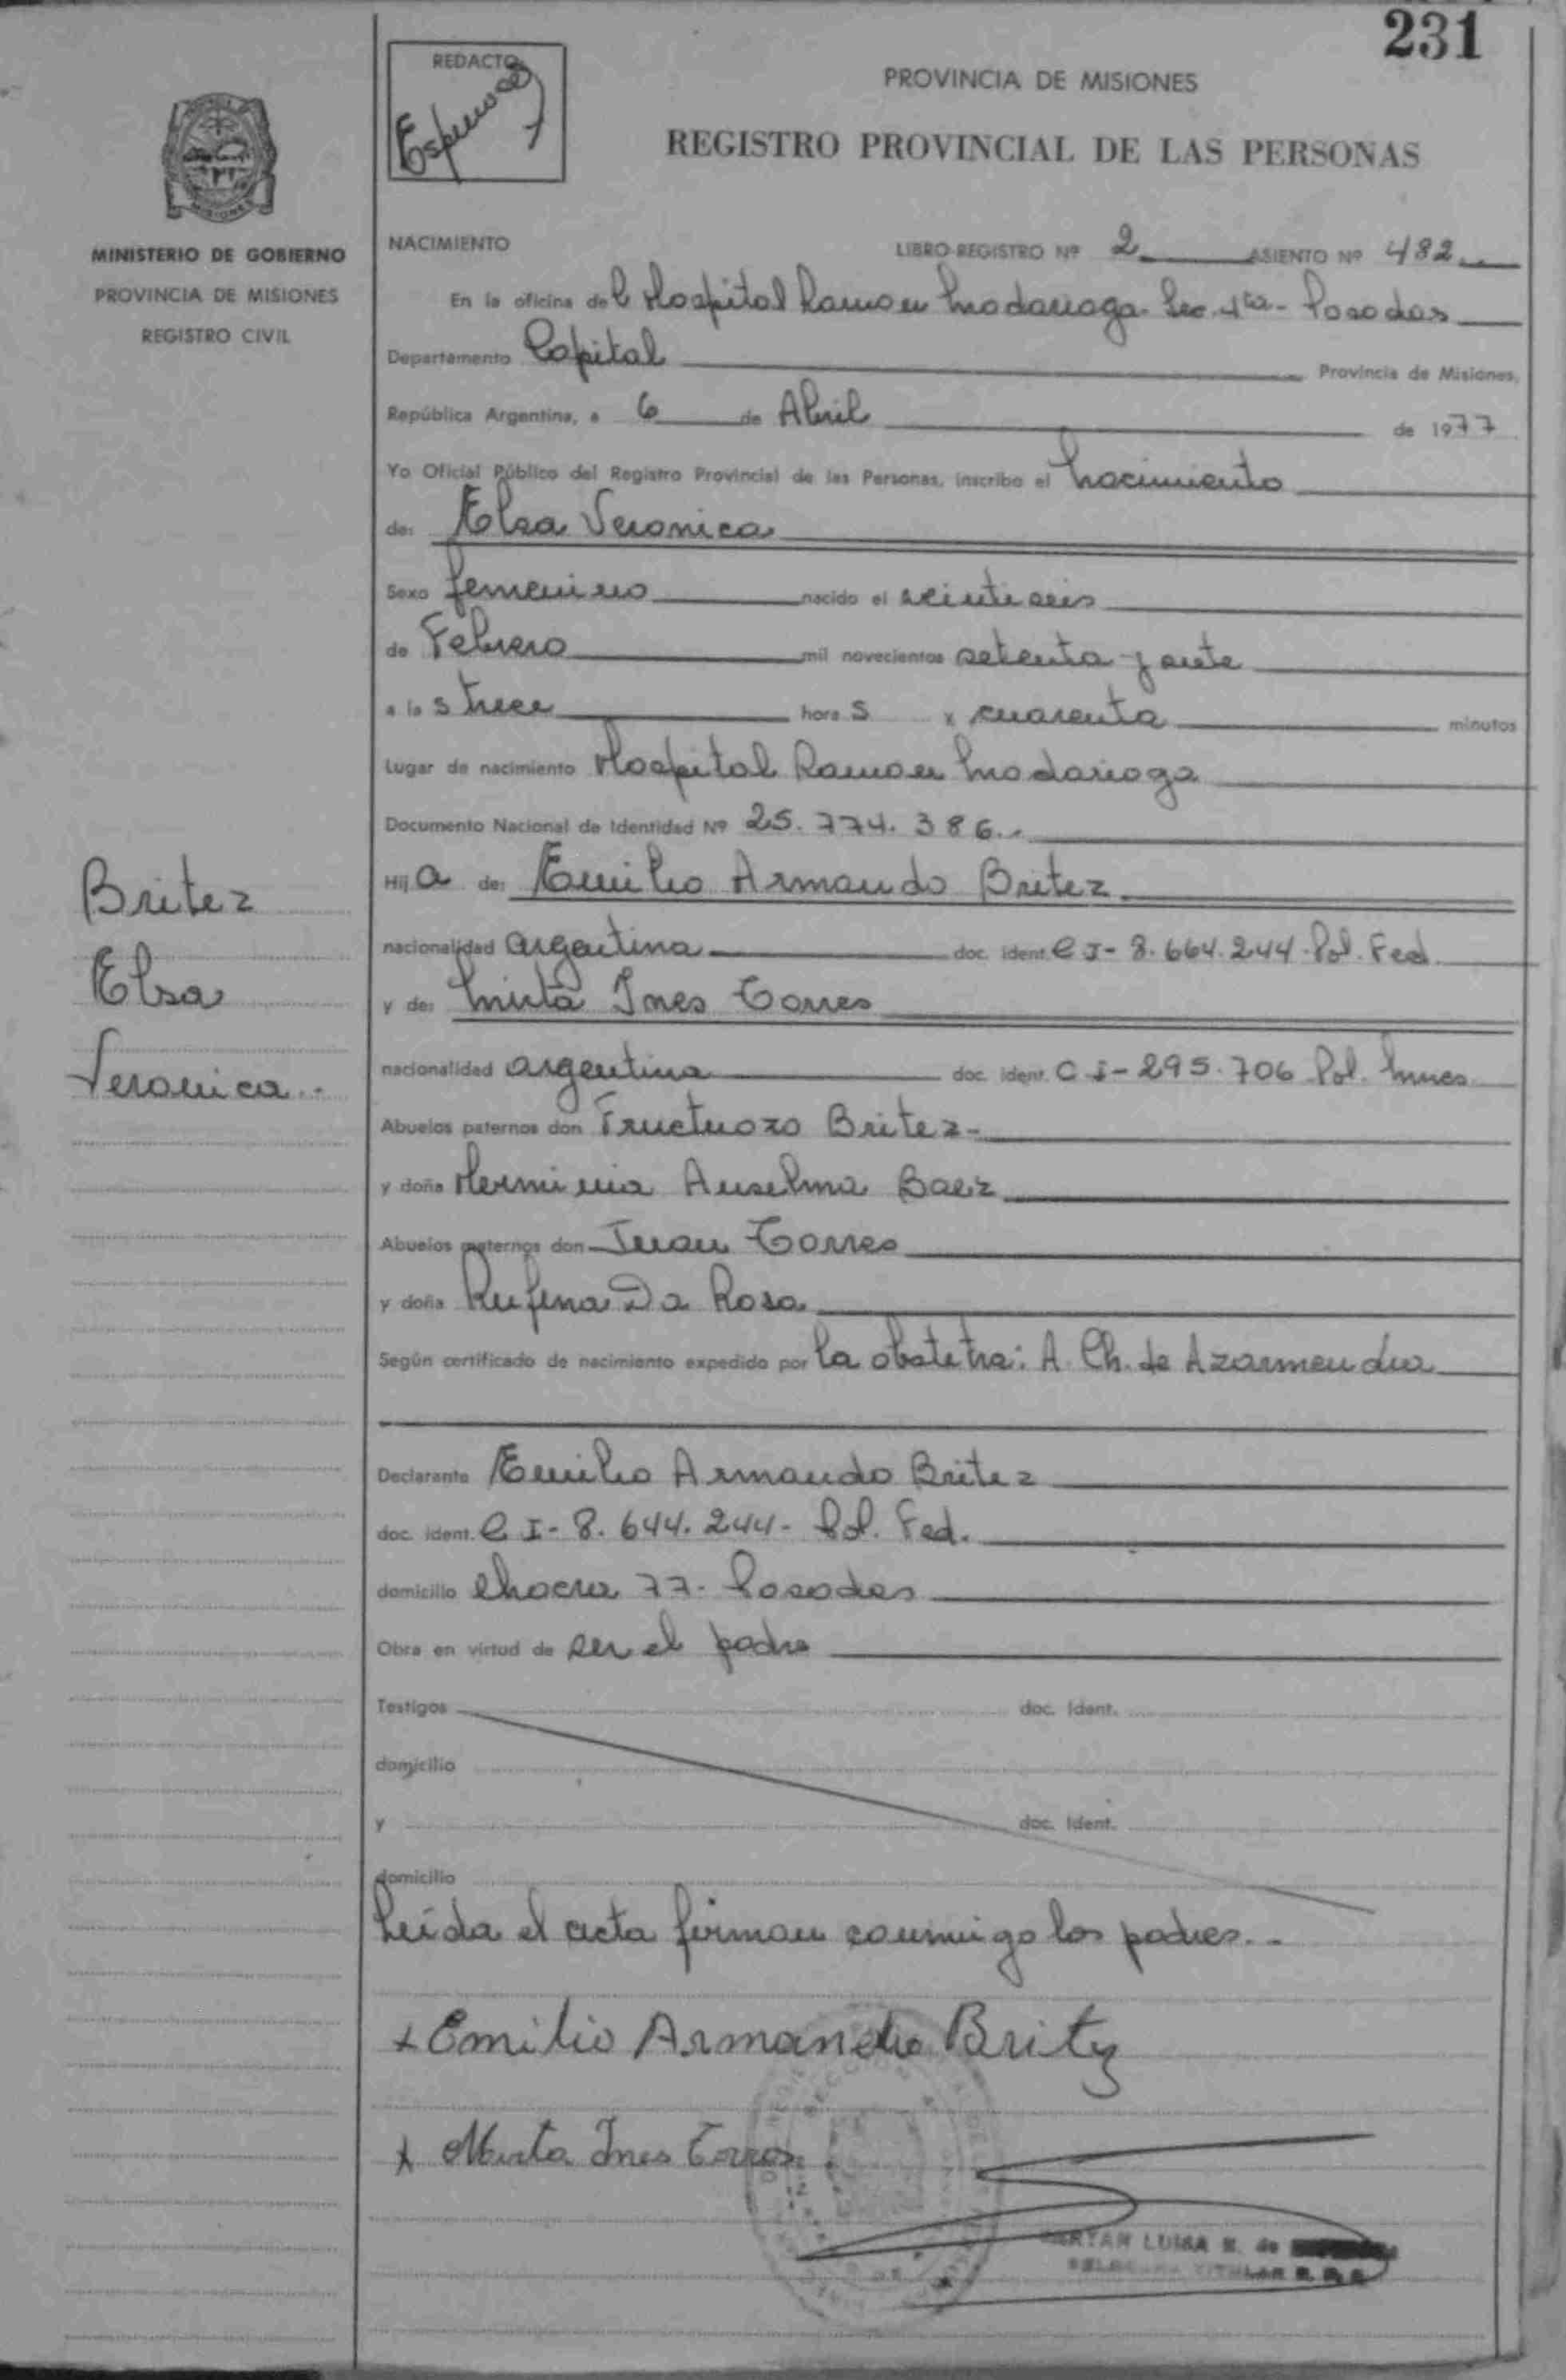 231
REDACTO
Espinoza
PROVINCIA DE MISIONES
REGISTRO PROVINCIAL DE LAS PERSONAS
MISIONES
MINISTERIO DE GOBIERNO
PROVINCIA DE MISIONES
REGISTRO CIVIL
NACIMIENTO LIBRO-REGISTRO Nº 2 ASIENTO Nº 482
En la oficina del Hospital Ramon Madariaga Sec. 4ta - Posadas
Departamento Capital Provincia de Misiones,
República Argentina, a 6 de Abril de 1977
Yo Oficial Público del Registro Provincial de las Personas, inscribo el Nacimiento
de: Elsa Veronica
Sexo femenino nacido el veintiseis
de Febrero mil novecientos setenta y siete
a las trece horas y cuarenta minutos
Lugar de nacimiento Hospital Ramon Madariaga
Documento Nacional de Identidad Nº 25.774.386.-
Hija de: Emilio Armando Britez
nacionalidad argentina doc. ident. C I - 8.664.244 - Pol. Fed.
y de: Mirta Ines Torres
nacionalidad argentina doc. ident. C I - 295.706 Pol. Mnes
Abuelos paternos don Fructuozo Britez -
y doña Herminia Anselma Baez
Abuelos maternos don Juan Torres
y doña Rufina Da Rosa
Según certificado de nacimiento expedido por la obstetra: A. Ch. de Azarmendia
Britez
Elsa
Veronica.-
Declarante Emilio Armando Britez
doc. ident. C I - 8.644.244 - Pol. Fed.
domicilio Chacra 77 - Posadas
Obra en virtud de ser el padre
Testigos doc. ident.
domicilio
y doc. ident.
domicilio
Leída el acta firman conmigo los padres.-
x Emilio Armando Britez
x Mirta Ines Torres
LUISA E. de
TITULAR R. P. P.